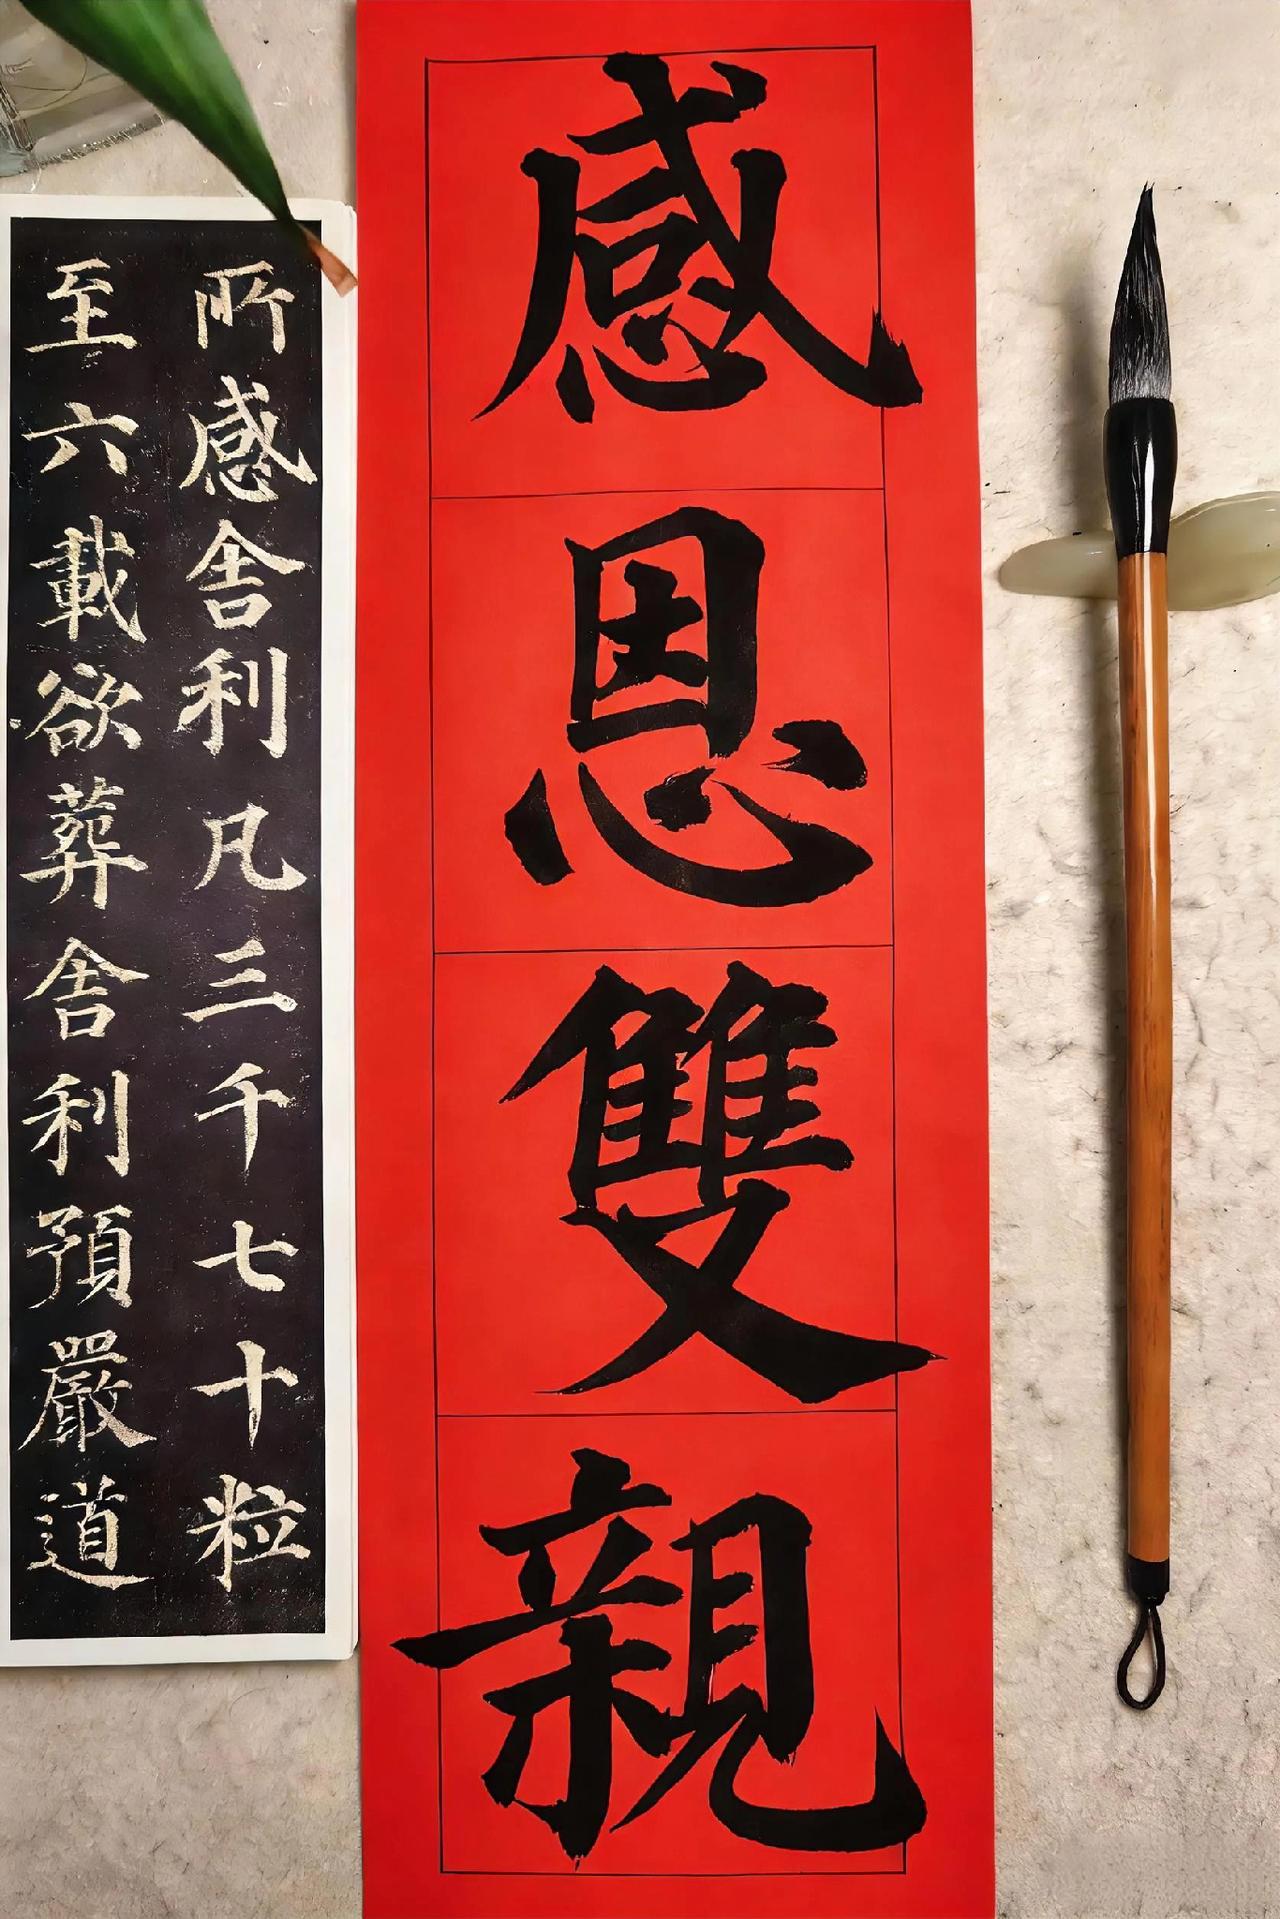 感恩雙親
所感舍利凡三千七十粒
至六載欲葬舍利預嚴道